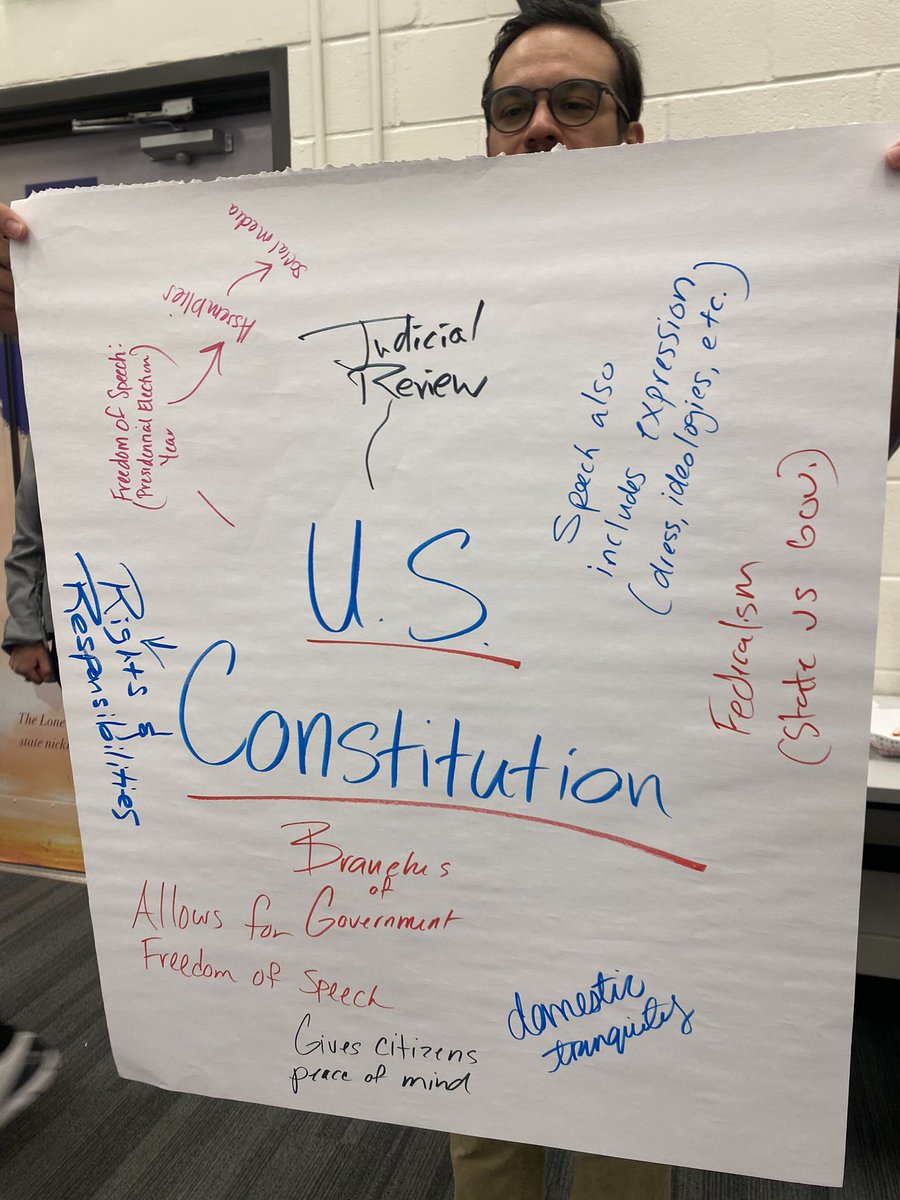 Social media
Assemblies
Freedom of Speech:
(Presidential Election
Year
Judicial
Review
Speech also
includes expression
(dress, ideologies, etc.)
Federalism
(State vs Gov.)
U.S.
Constitution
Rights &
Responsibilities
Branches
of
Government
Allows for
Freedom of Speech
Gives citizens
peace of mind
domestic
tranquility
The Lone
state nick